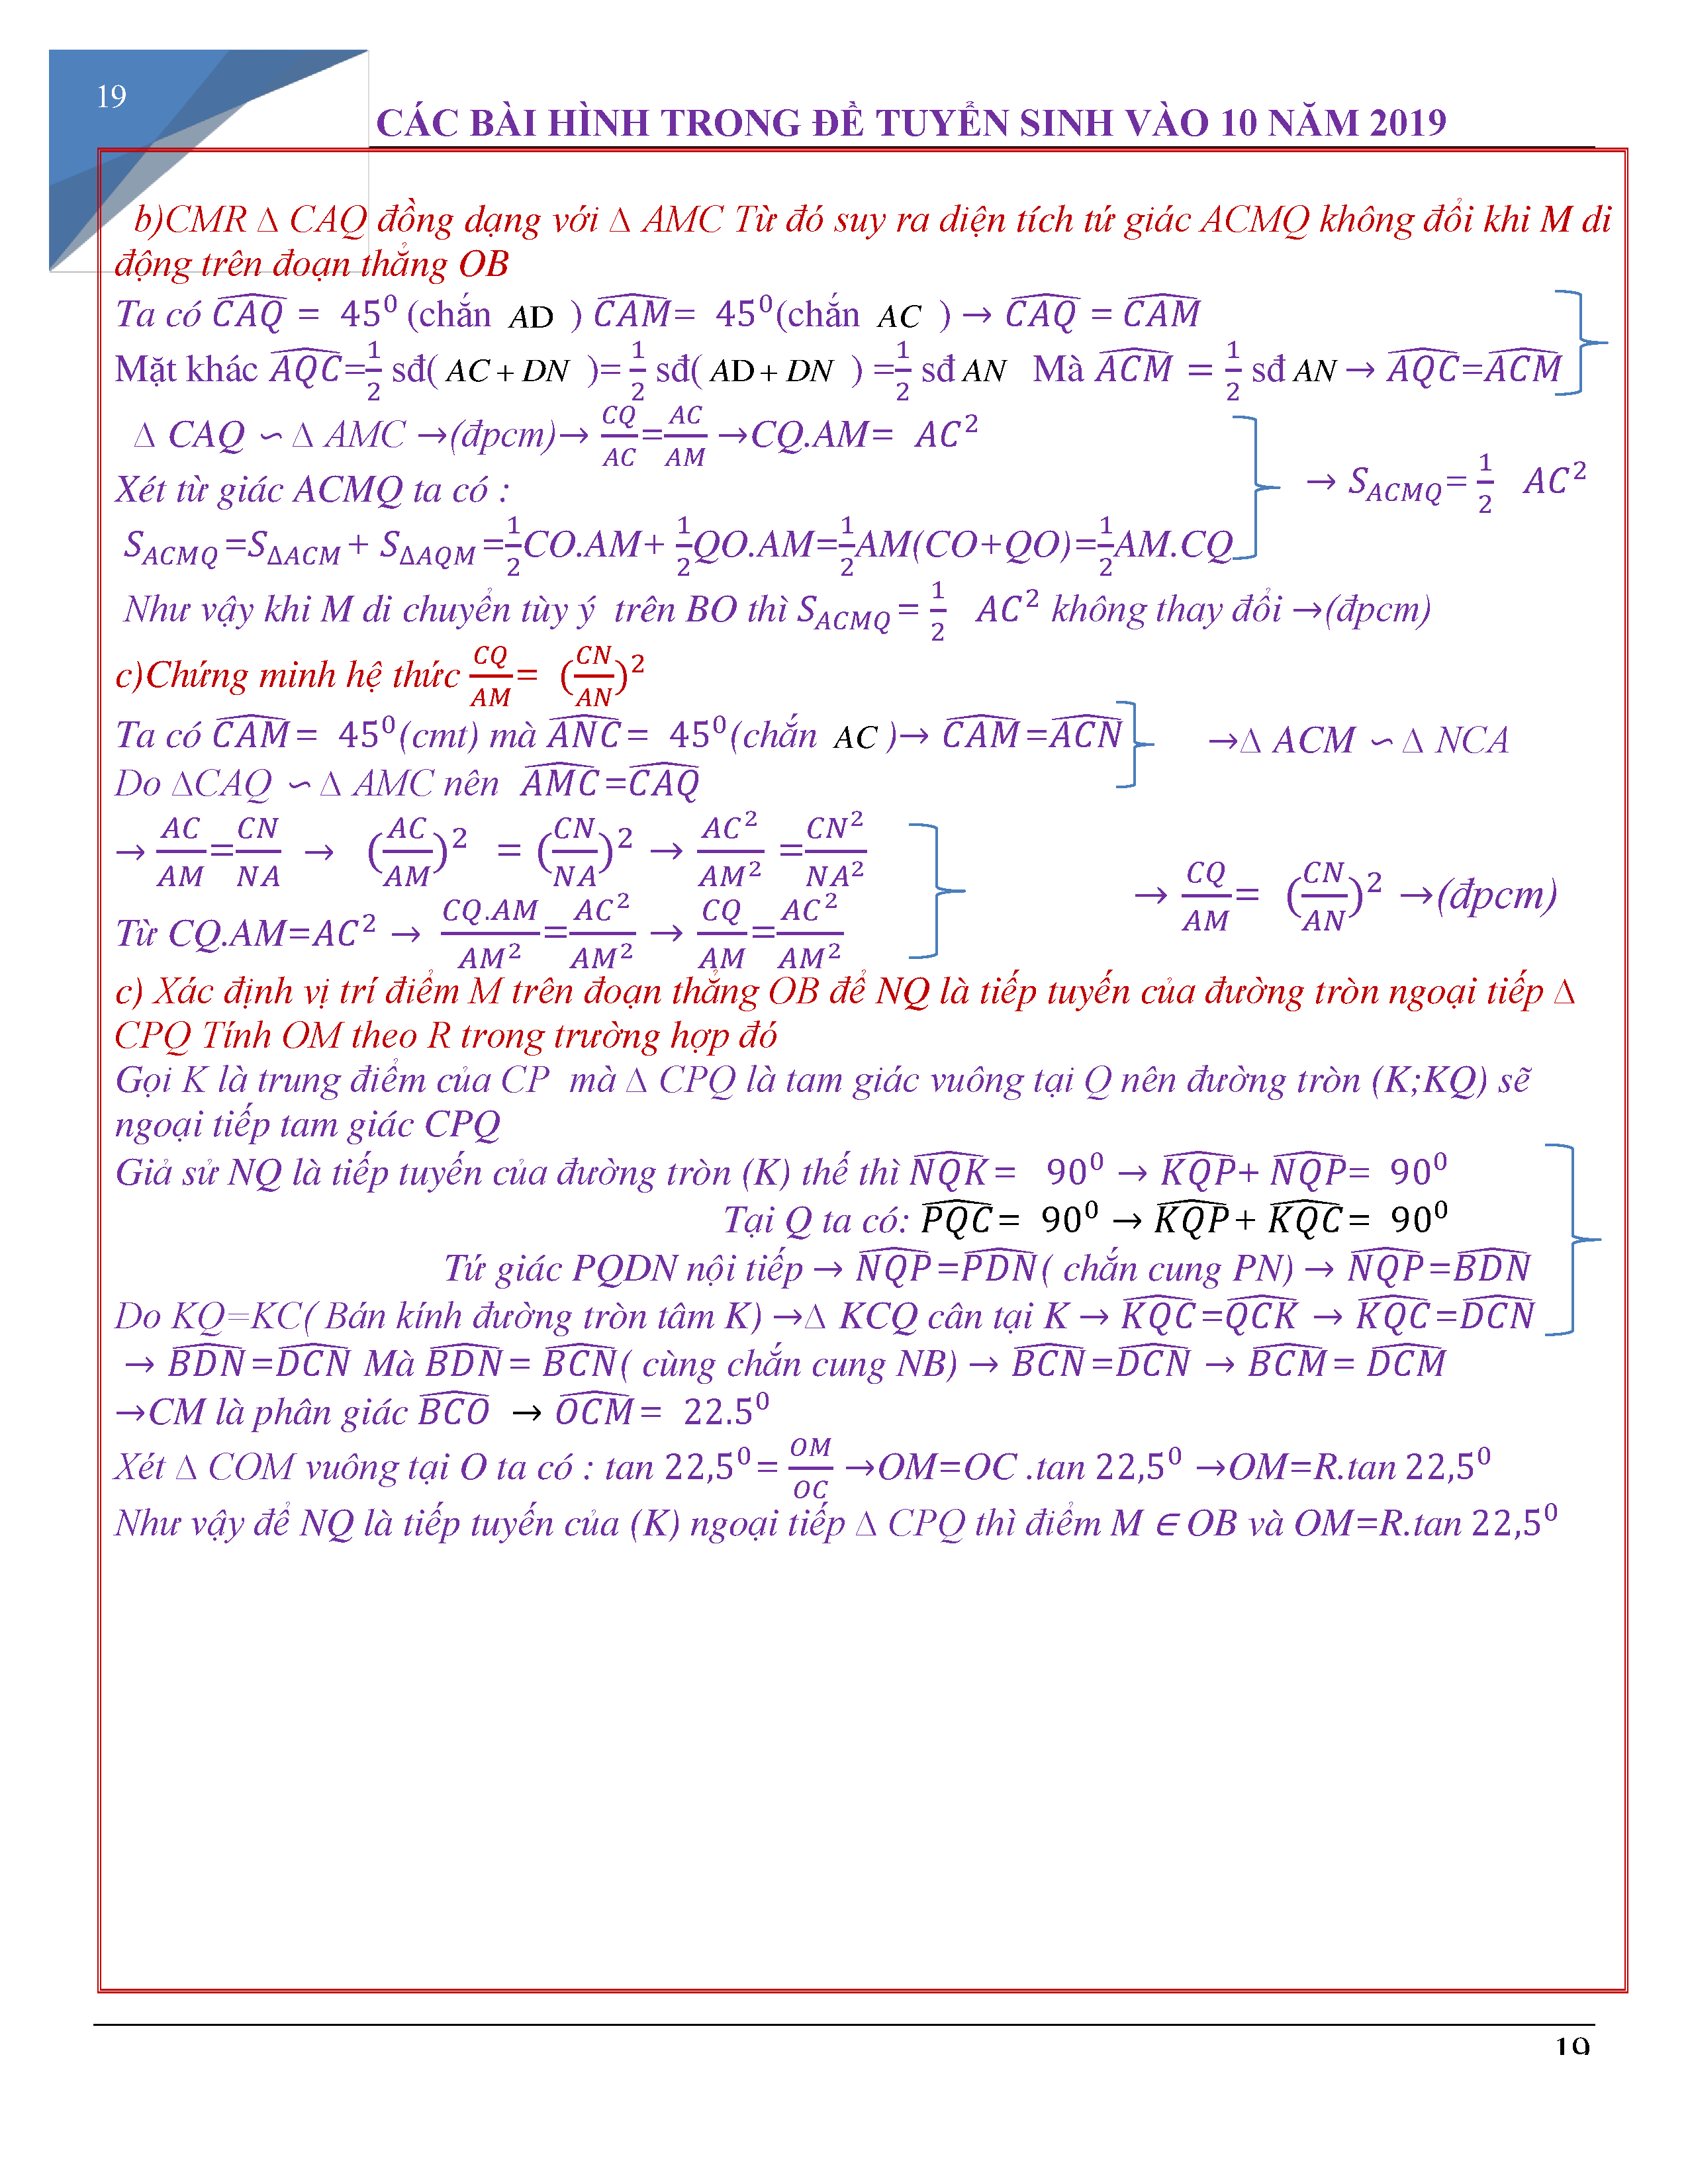 19
CÁC BÀI HÌNH TRONG ĐỀ TUYỂN SINH VÀO 10 NĂM 2019
b)CMR ∆ CAQ đồng dạng với ∆ AMC Từ đó suy ra diện tích tứ giác ACMQ không đổi khi M di
động trên đoạn thẳng OB
Ta có $\widehat{CAQ}$ = 45⁰ (chắn AD ) $\widehat{CAM}$= 45⁰(chắn AC ) → $\widehat{CAQ}$ = $\widehat{CAM}$
Mặt khác $\widehat{AQC}$=$\frac{1}{2}$ sđ( AC + DN )= $\frac{1}{2}$ sđ( AD + DN ) =$\frac{1}{2}$ sđ AN Mà $\widehat{ACM}$ = $\frac{1}{2}$ sđ AN → $\widehat{AQC}$=$\widehat{ACM}$
∆ CAQ ∽ ∆ AMC →(đpcm)→ $\frac{CQ}{AC}$=$\frac{AC}{AM}$ →CQ.AM= AC²
Xét từ giác ACMQ ta có :
→ $S_{ACMQ}$= $\frac{1}{2}$ AC²
$S_{ACMQ}$=$S_{∆ACM}$+ $S_{∆AQM}$=$\frac{1}{2}$CO.AM+ $\frac{1}{2}$QO.AM=$\frac{1}{2}$AM(CO+QO)=$\frac{1}{2}$AM.CQ
Như vậy khi M di chuyển tùy ý trên BO thì $S_{ACMQ}$= $\frac{1}{2}$ AC² không thay đổi →(đpcm)
c)Chứng minh hệ thức $\frac{CQ}{AM}$= ($\frac{CN}{AN}$)²
Ta có $\widehat{CAM}$= 45⁰(cmt) mà $\widehat{ANC}$= 45⁰(chắn AC )→ $\widehat{CAM}$=$\widehat{ACN}$ →∆ ACM ∽ ∆ NCA
Do ∆CAQ ∽ ∆ AMC nên $\widehat{AMC}$=$\widehat{CAQ}$
→ $\frac{AC}{AM}$=$\frac{CN}{NA}$ → ($\frac{AC}{AM}$)² = ($\frac{CN}{NA}$)² → $\frac{AC^2}{AM^2}$ =$\frac{CN^2}{NA^2}$
→ $\frac{CQ}{AM}$= ($\frac{CN}{AN}$)² →(đpcm)
Từ CQ.AM=AC² → $\frac{CQ.AM}{AM^2}$=$\frac{AC^2}{AM^2}$ → $\frac{CQ}{AM}$=$\frac{AC^2}{AM^2}$
c) Xác định vị trí điểm M trên đoạn thẳng OB để NQ là tiếp tuyến của đường tròn ngoại tiếp ∆
CPQ Tính OM theo R trong trường hợp đó
Gọi K là trung điểm của CP mà ∆ CPQ là tam giác vuông tại Q nên đường tròn (K;KQ) sẽ
ngoại tiếp tam giác CPQ
Giả sử NQ là tiếp tuyến của đường tròn (K) thế thì $\widehat{NQK}$= 90⁰ → $\widehat{KQP}$+ $\widehat{NQP}$= 90⁰
Tại Q ta có: $\widehat{PQC}$= 90⁰ → $\widehat{KQP}$+ $\widehat{KQC}$= 90⁰
Tứ giác PQDN nội tiếp → $\widehat{NQP}$=$\widehat{PDN}$( chắn cung PN) → $\widehat{NQP}$=$\widehat{BDN}$
Do KQ=KC( Bán kính đường tròn tâm K) →∆ KCQ cân tại K → $\widehat{KQC}$=$\widehat{QCK}$ → $\widehat{KQC}$=$\widehat{DCN}$
→ $\widehat{BDN}$=$\widehat{DCN}$ Mà $\widehat{BDN}$= $\widehat{BCN}$( cùng chắn cung NB) → $\widehat{BCN}$=$\widehat{DCN}$ → $\widehat{BCM}$= $\widehat{DCM}$
→CM là phân giác $\widehat{BCO}$ → $\widehat{OCM}$= 22.5⁰
Xét ∆ COM vuông tại O ta có : tan 22,5⁰= $\frac{OM}{OC}$ →OM=OC .tan 22,5⁰ →OM=R.tan 22,5⁰
Như vậy để NQ là tiếp tuyến của (K) ngoại tiếp ∆ CPQ thì điểm M ∈ OB và OM=R.tan 22,5⁰
19